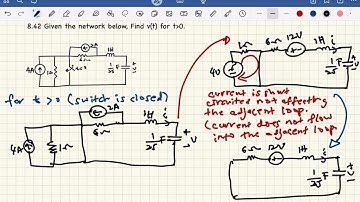 8.42 Given the network below, Find v(t) for t>0.
2A
1H
6Ω
4A
1Ω
1/25 F
+
v
-
for t > 0 (switch is closed)
2A
6Ω
1H
i
4A
1Ω
1/25 F
+
V
-
1Ω
6Ω
12V
1H
i
4V
1/25 F
+
V
-
current is short
circuited not affecting
the adjacent loop.
(current does not flow
into the adjacent loop.
6Ω
12V
1H
i
1/25 F
+
V
-